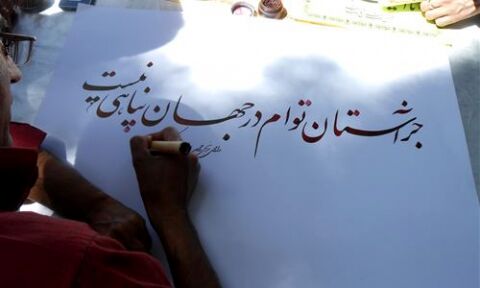 جز آستان توام در جهان پناهی نیست